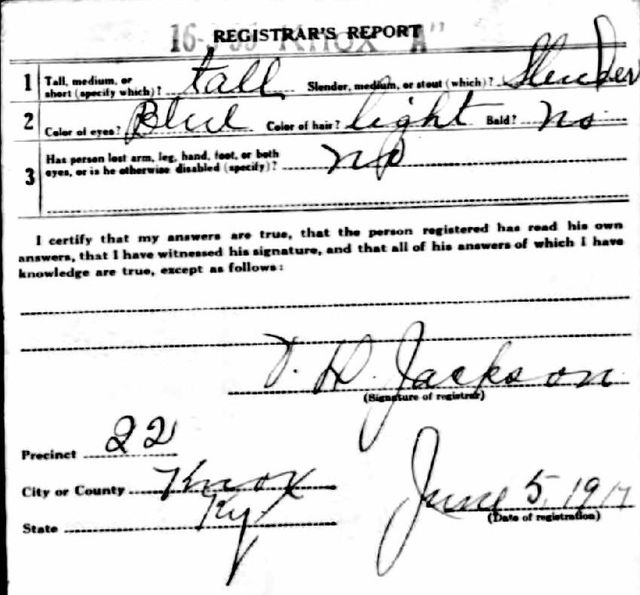 REGISTRAR'S REPORT
1 Tall, medium, or short (specify which)? tall Slender, medium, or stout (which)? Slender
2 Color of eyes? Blue Color of hair? light Bald? no
3 Has person lost arm, leg, hand, foot, or both eyes, or is he otherwise disabled (specify)? no
I certify that my answers are true, that the person registered has read his own
answers, that I have witnessed his signature, and that all of his answers of which I have
knowledge are true, except as follows:
D. Jackson
(Signature of registrar)
Precinct 22
City or County Knox
State Ky.
June 5, 1917
(Date of registration)